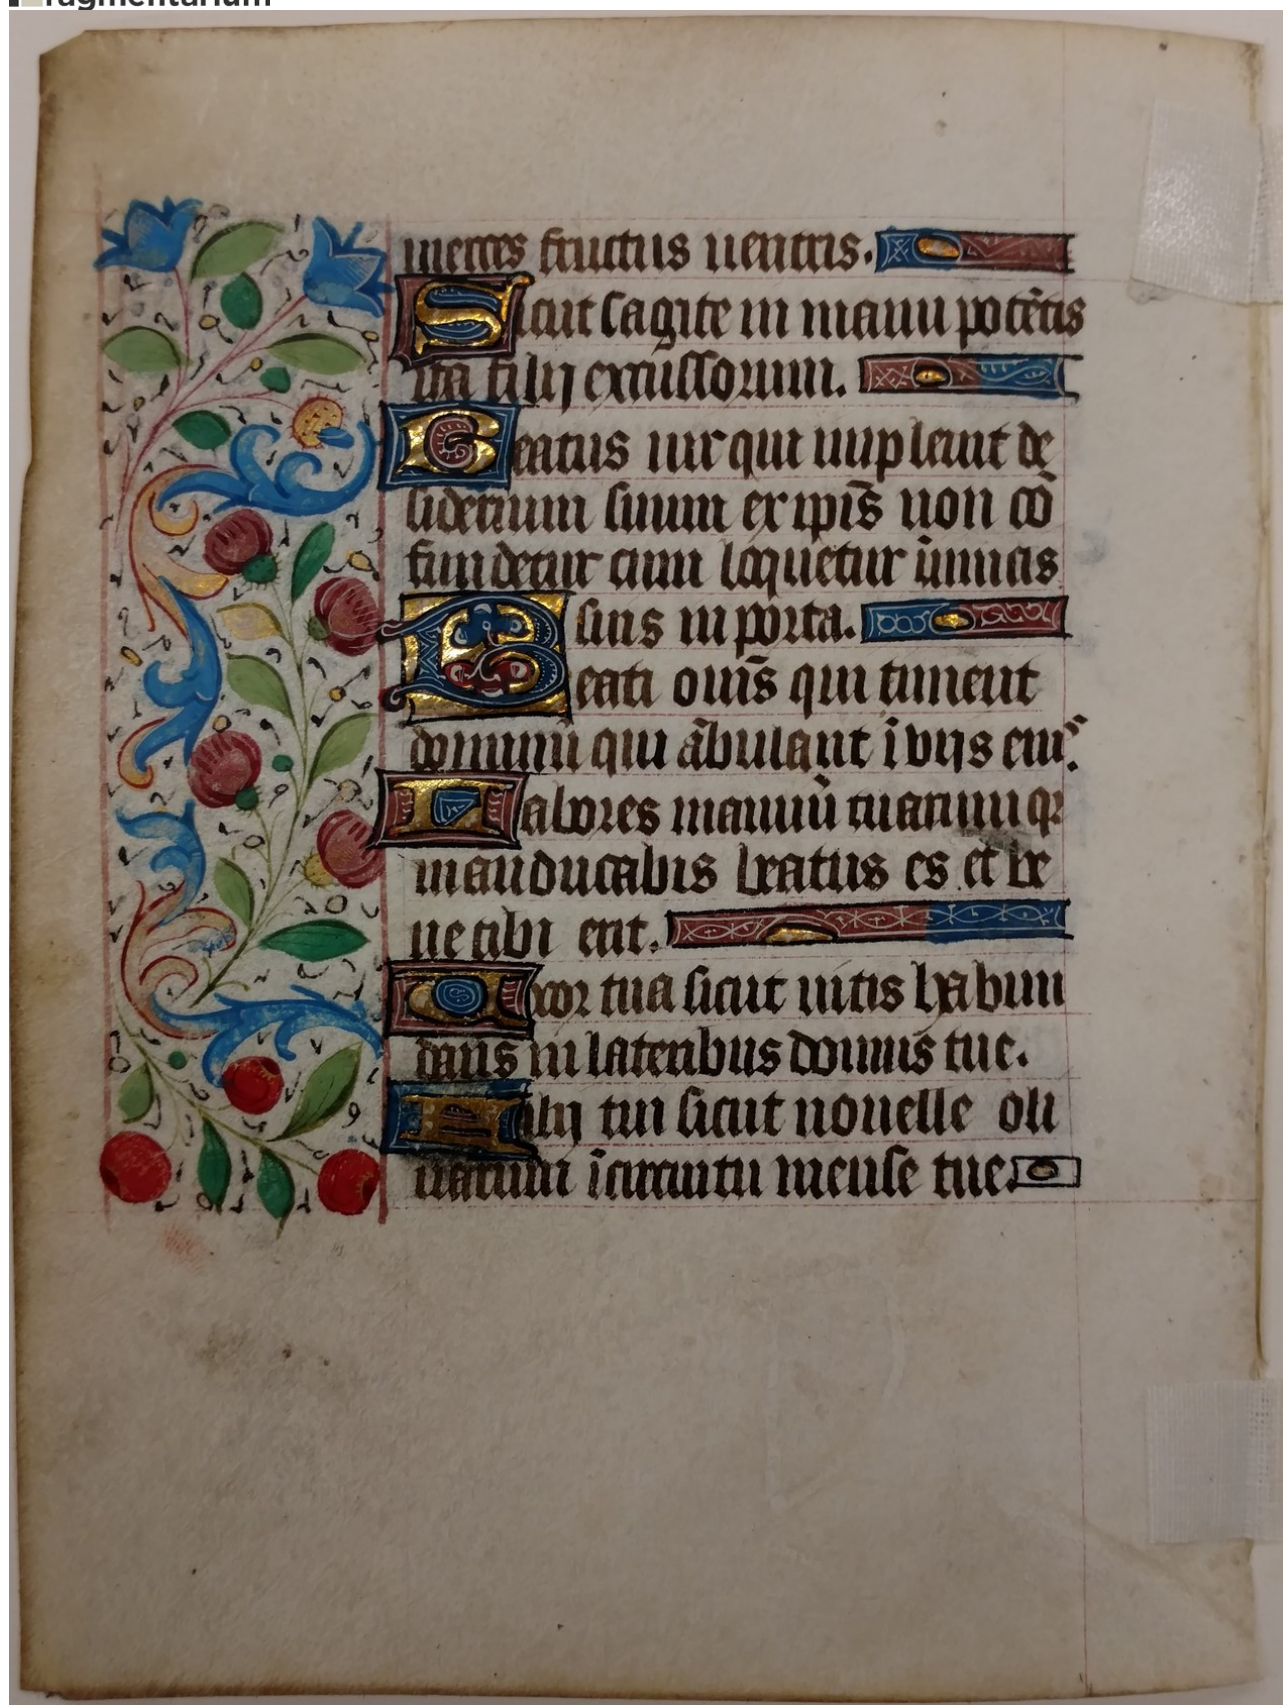 ragmentarium
merces fructus uentris.
Sicut sagite in manu potẽtis
ita filij excussorum.
Beatus uir qui impleuit de
siderium suum ex ipĩs non cõ
fundetur cum loquetur inimicis
suis in porta.
Beati om̃s qui timent
dominũ qui ãbulant ĩ vijs eiuꝰ.
Labores manuũ tuarum qꝛ
manducabis beatus es et be
ne tibi erit.
Uxor tua sicut uitis habun
dans in lateribus domus tue.
Filij tui sicut nouelle oli
uarum ĩ circuitu mense tue.